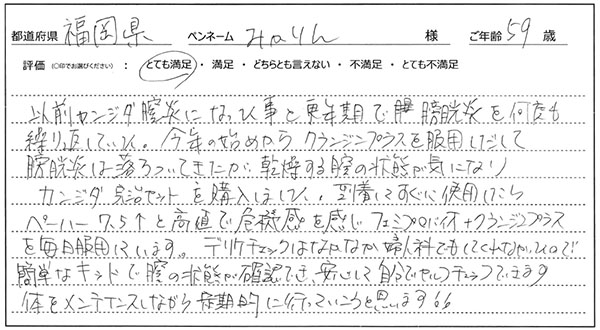 都道府県 福岡県 ペンネーム みかりん 様 ご年齢 59 歳
評価 (○印でお選びください) : とても満足 ・ 満足 ・ どちらとも言えない ・ 不満足 ・ とても不満足
以前カンジダ膣炎になった事と更年期で膀胱炎を何度も
繰り返していた。今年の始めからクランジンプラスを服用しだして
膀胱炎は落ちついてきたが、乾燥する膣の状態が気になり
カンジダ 完治セットを購入しました。到着してすぐに使用したら
ペーハー 7.5↑と高値で危機感を感じ フェミプロバイオ+クランジンプラス
を毎日服用しています。デリケチェックはなかなか婦人科でもしてくれなかったので
簡単なキットで膣の状態が確認でき、安心して自分でセルフチェックできます
体をメンテナンスしながら定期的に行っていこうと思います